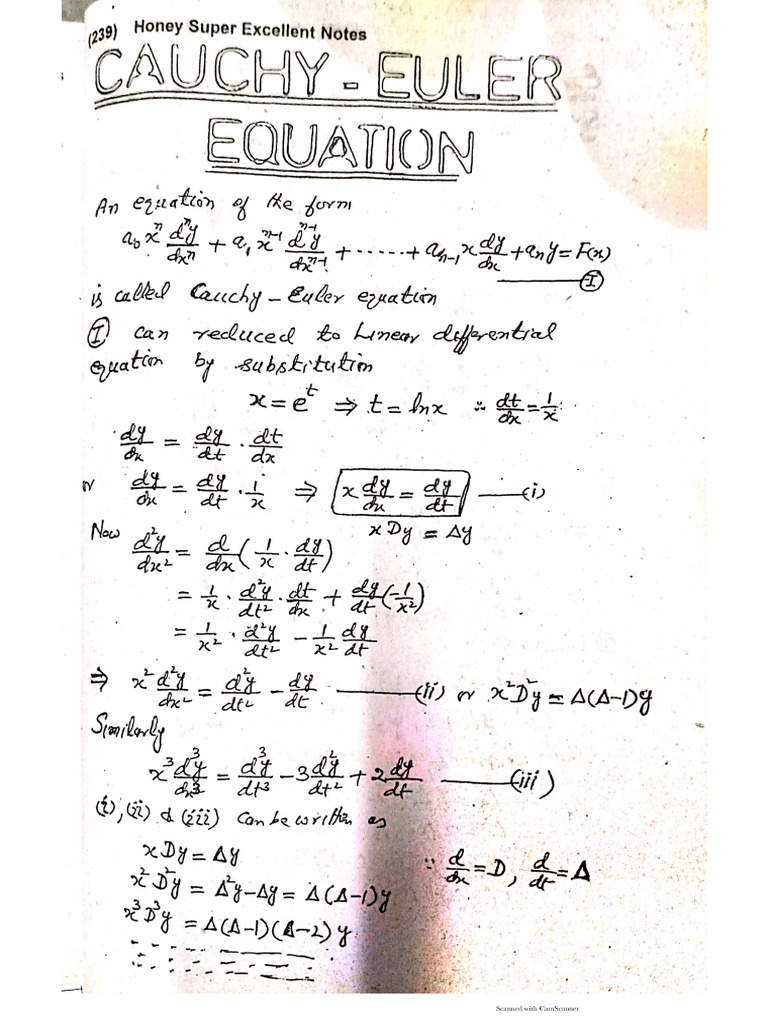 (239) Honey Super Excellent Notes
CAUCHY - EULER
EQUATION
An equation of the form
a₀ xⁿ dⁿy/dxⁿ + a₁ xⁿ⁻¹ dⁿ⁻¹y/dxⁿ⁻¹ + ...... + aₙ₋₁ x dy/dx + aₙy = F(x)
—— Ⓘ
is called Cauchy - Euler equation
Ⓘ can reduced to Linear differential
equation by substitution
x = eᵗ ⇒ t = lnx ∴ dt/dx = 1/x
dy/dx = dy/dt · dt/dx
or dy/dx = dy/dt · 1/x ⇒ x dy/dx = dy/dt —— (i)
xDy = Δy
Now d²y/dx² = d/dx (1/x · dy/dt)
= 1/x · d²y/dt² · dt/dx + dy/dt (-1/x²)
= 1/x² · d²y/dt² - 1/x² dy/dt
⇒ x² d²y/dx² = d²y/dt² - dy/dt —— (ii) or x²D²y = Δ(Δ-1)y
Similarly
x³ d³y/dx³ = d³y/dt³ - 3 d²y/dt² + 2 dy/dt —— (iii)
(i), (ii) & (iii) can be written as
xDy = Δy ∵ d/dx = D, d/dt = Δ
x²D²y = Δ²y - Δy = Δ(Δ-1)y
x³D³y = Δ(Δ-1)(Δ-2)y
Scanned with CamScanner